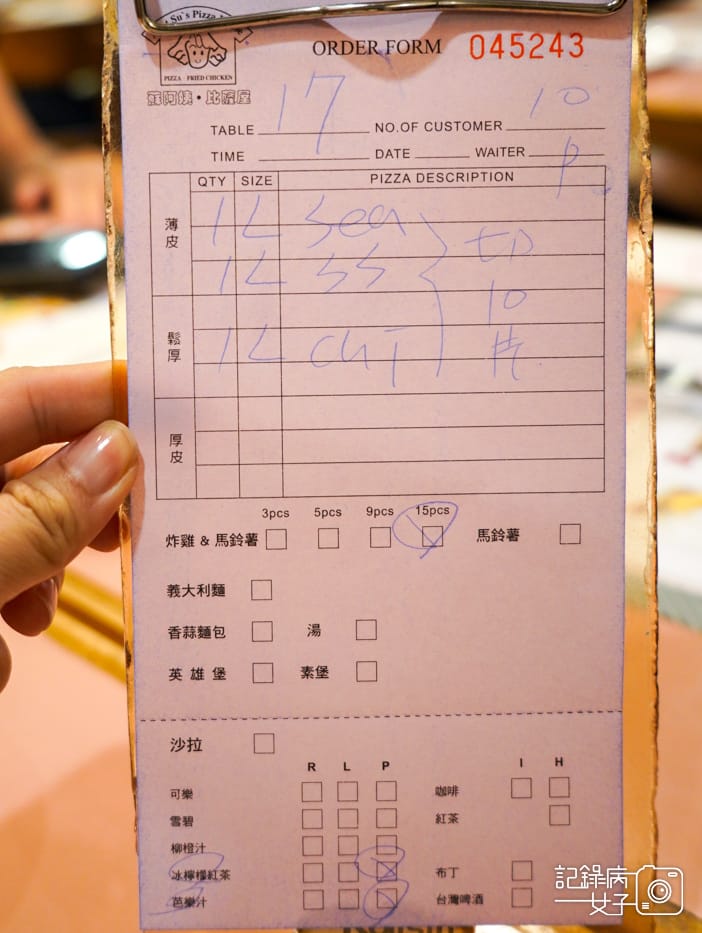 Su's Pizza
PIZZA FRIED CHICKEN
蘇阿姨・比薩屋
ORDER FORM 045243
TABLE 17 NO.OF CUSTOMER 10
TIME DATE WAITER P
QTY SIZE PIZZA DESCRIPTION
薄皮
1 L Sea
1 L SS
切
10
片
鬆厚
1 L CHI
厚皮
3pcs 5pcs 9pcs 15pcs
炸雞 & 馬鈴薯 馬鈴薯
義大利麵
香蒜麵包 湯
英雄堡 素堡
沙拉
R L P I H
可樂 咖啡
雪碧 紅茶
柳橙汁
冰檸檬紅茶 布丁
芭樂汁 台灣啤酒
記錄病
女子